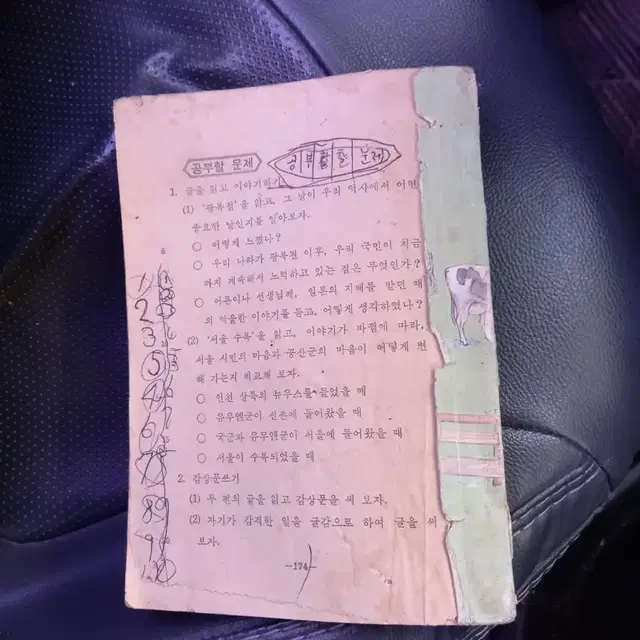 공부할 문제
공부할 문제
1. 글을 읽고 이야기하기
(1) '광복절'을 읽고, 그 날이 우리 역사에서 어떤
중요한 날인지를 알아보자.
○ 어떻게 느꼈나?
○ 우리 나라가 광복절 이후, 우리 국민이 지금
까지 계속해서 노력하고 있는 점은 무엇인가?
○ 어른이나 선생님께, 일본의 지배를 받던 때
의 억울한 이야기를 듣고, 어떻게 생각하였나?
(2) '서울 수복'을 읽고, 이야기가 바뀜에 따라,
서울 시민의 마음과 공산군의 마음이 어떻게 변
해 가는지 비교해 보자.
○ 인천 상륙의 뉴우스를 들었을 때
○ 유우엔군이 신촌에 들어왔을 때
○ 국군과 유우엔군이 서울에 들어왔을 때
○ 서울이 수복되었을 때
2. 감상문쓰기
(1) 두 편의 글을 읽고 감상문을 써 보자.
(2) 자기가 감격한 일을 글감으로 하여 글을 써
보자.
—174—
1
2
3
5
4
6
7
8
9